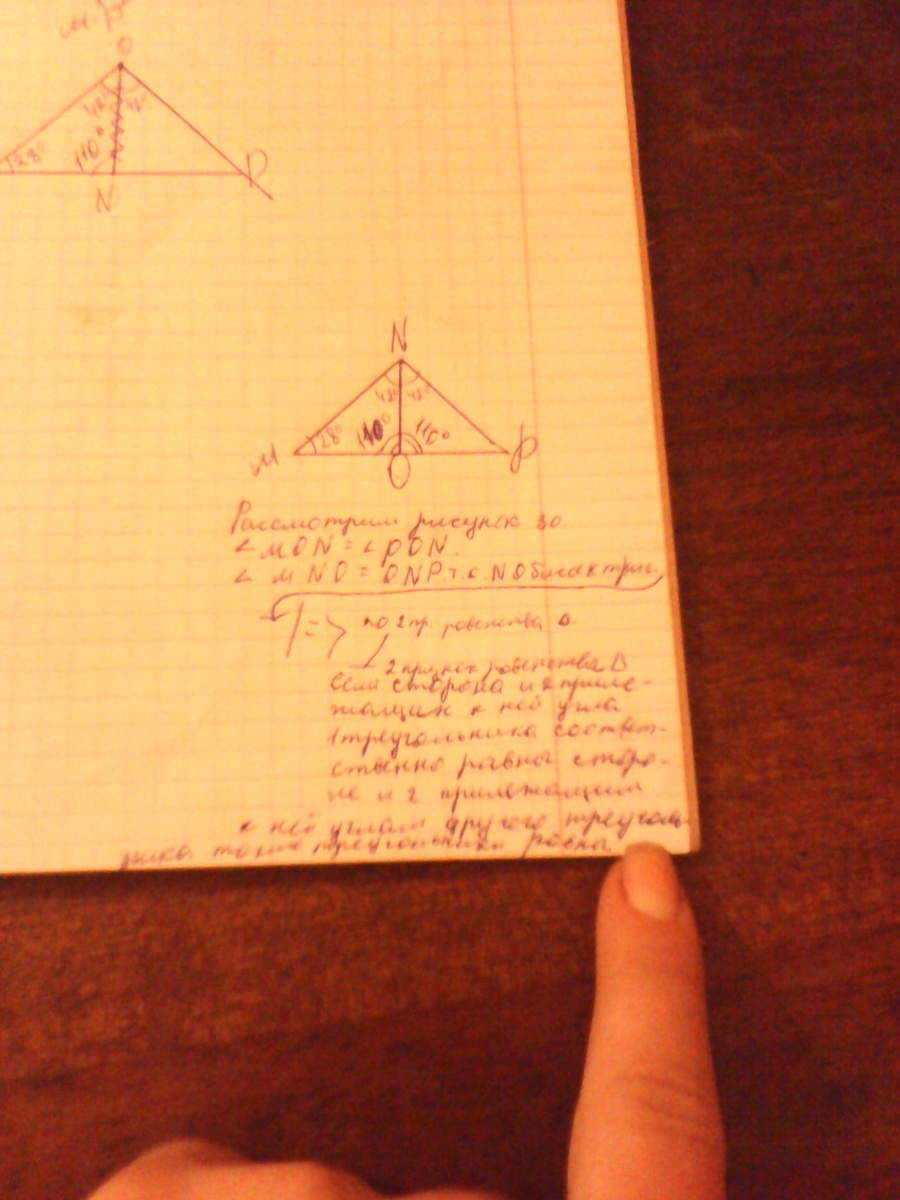 O
42°
42°
28°
110°
N
P
N
42°
42°
28°
110°
110°
M
O
P
Рассмотрим рисунок 30.
∠ MON = ∠ PON.
∠ MNO = ONP. т.к. NO биссектрис.
=> по 2 пр. равенства Δ.
2 признак равенства Δ
Если сторона и 2 приле-
жащих к ней угла
1 треугольника соответ-
ственно равны сторо-
не и 2 прилежащим
к ней углам другого треуголь-
ника то треугольники равны